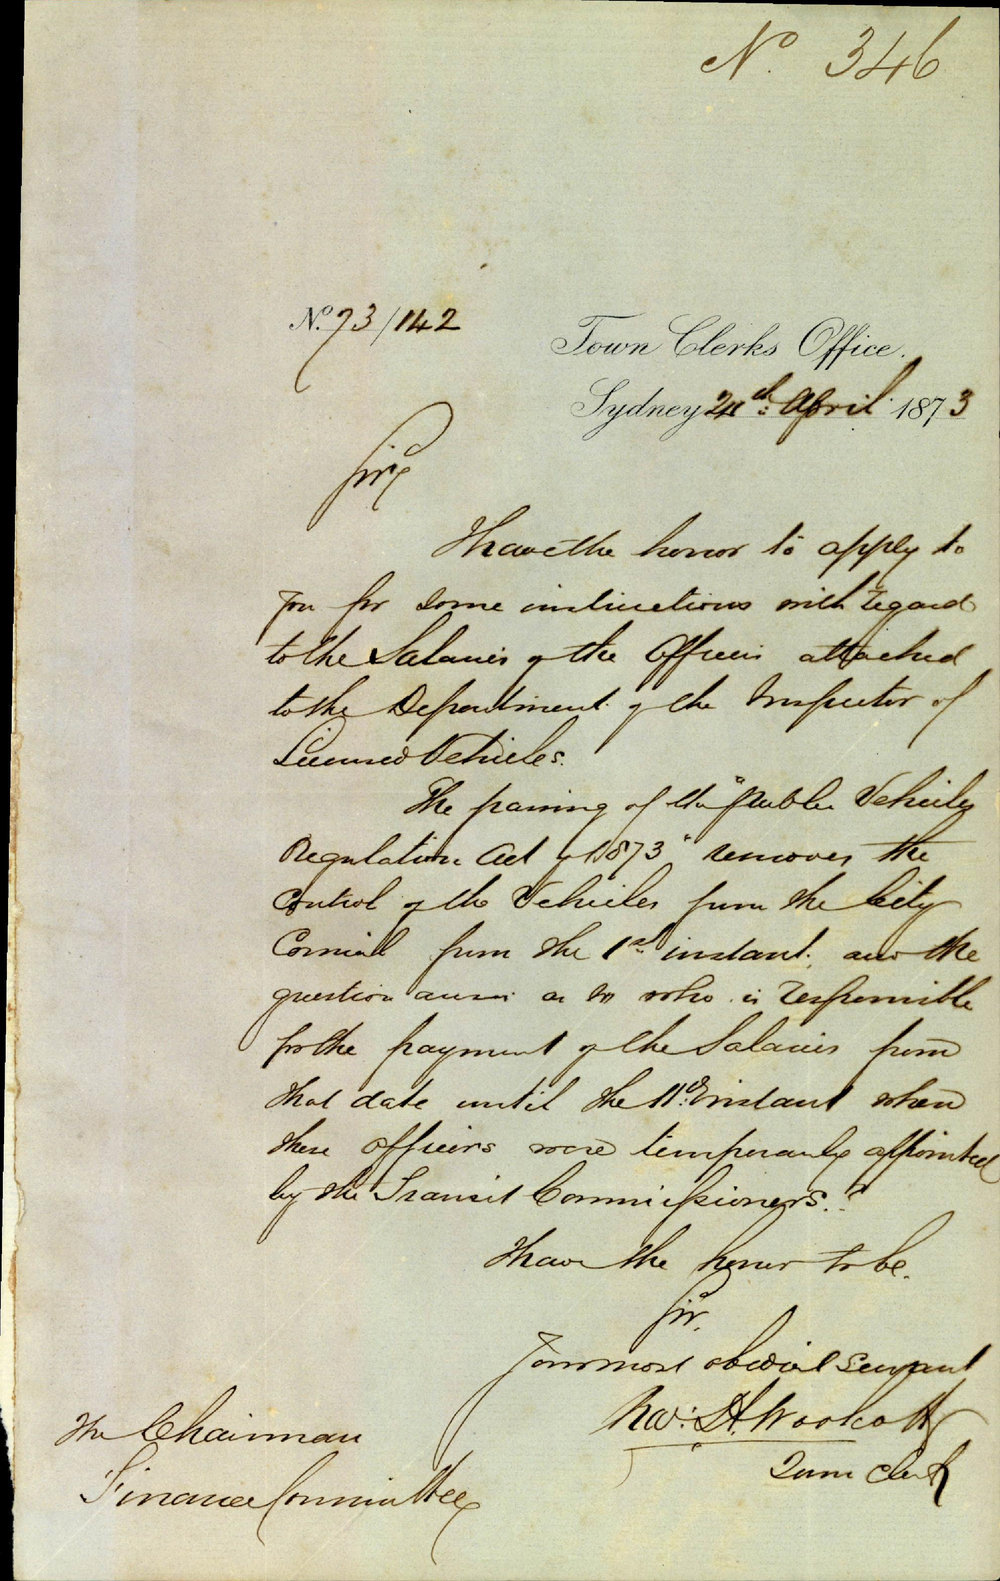 No. 346
No. 73/142
Town Clerks Office.
Sydney 24th April 1873
Sir,
I have the honor to apply to
you for some instructions with regard
to the Salaries of the Officers attached
to the Department of the Inspector of
Licensed Vehicles.
The passing of the "Public Vehicles
Regulation Act of 1873" removes the
control of the Vehicles from the City
Council from the 1st instant, and the
question arises as to who is responsible
for the payment of the Salaries from
that date until the 11th instant when
these officers were temporarily appointed
by the Transit Commissioners.?
I have the honor to be.
Sir.
Your most obedient servant
Chas: H. Woolcott
Town Clerk
The Chairman
Finance Committee